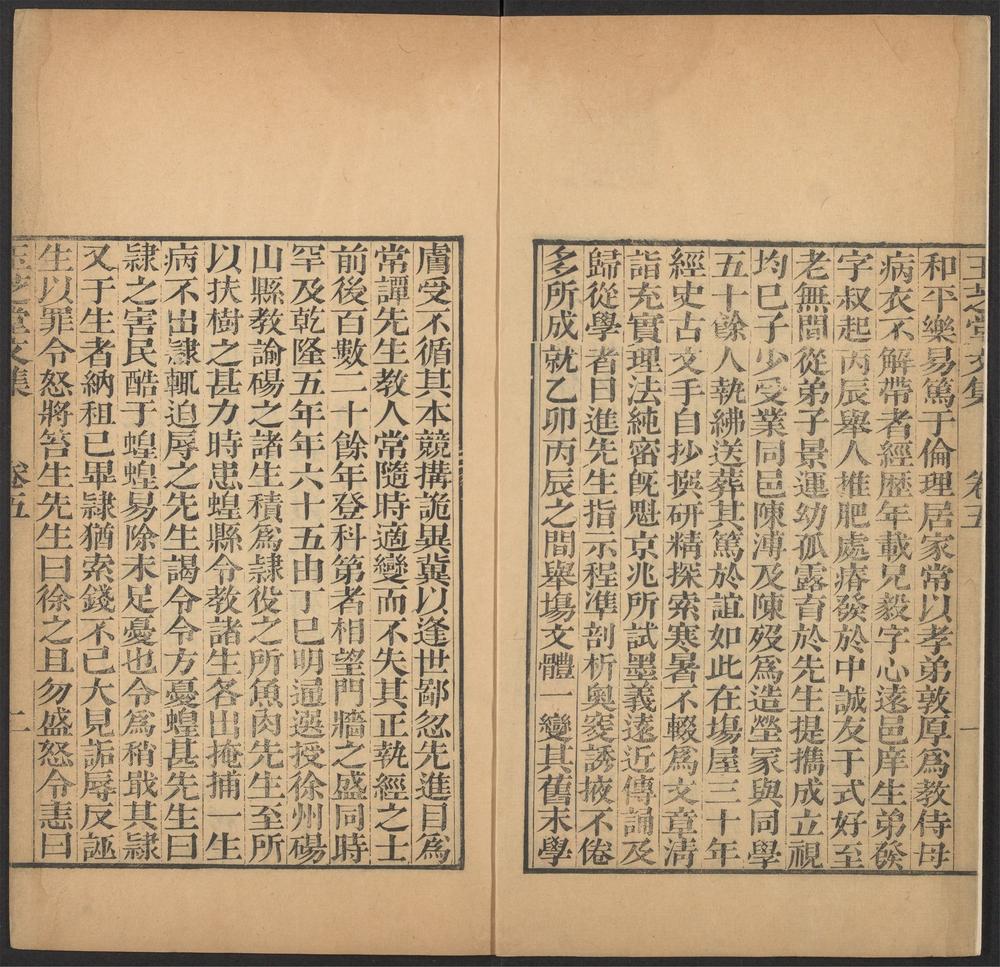 玉芝堂文集 卷五 一
和平樂易篤于倫理居家常以孝弟敦厚爲教侍母
病衣不解帶者經歷年載兄毅字心遠邑庠生弟發
字叔起丙辰舉人推肥處瘠發於中誠友于式好至
老無間從弟子景運幼孤露育於先生提攜成立視
均巳子少受業同邑陳溥及陳歿爲造塋冢與同學
五十餘人執紼送葬其篤於誼如此在場屋三十年
經史古文手自抄撰研精探索寒暑不輟爲文章淸
詣充實理法純密旣魁京兆所試墨義遠近傳誦及
歸從學者日進先生指示程準剖析奧窔誘掖不倦
多所成就乙卯丙辰之間舉塲文體一變其舊末學
膚受不循其本競搆詭異冀以逢世鄙忽先進目爲
常譚先生教人常隨時適變而不失其正執經之士
前後百數二十餘年登科第者相望門牆之盛同時
罕及乾隆五年年六十五由丁巳明通選授徐州碭
山縣教諭碭之諸生積爲隷役之所魚肉先生至所
以扶樹之甚力時患蝗縣令教諸生各出掩捕一生
病不出隷輒迫辱之先生謁令令方憂蝗甚先生曰
隷之害民酷于蝗蝗易除未足憂也令爲稍戢其隷
又于生者納租已畢隷猶索錢不已大見詬辱反誣
生以罪令怒將笞生先生曰徐之且勿盛怒令恚曰
玉芝堂文集 卷五 二